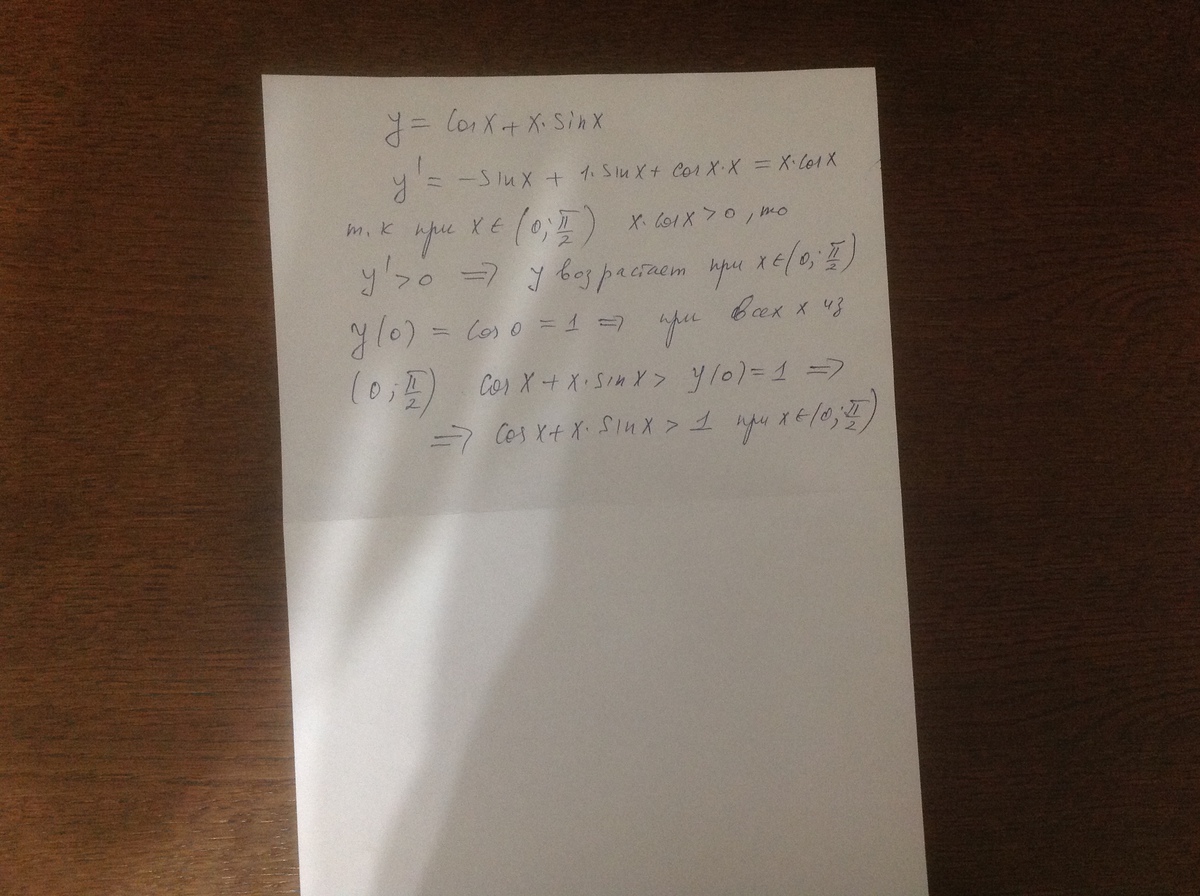 y = cos x + x · sin x
y' = -sin x + 1 · sin x + cos x · x = x · cos x
т.к при x ∈ (0; π/2) x · cos x > 0, то
y' > 0 => y возрастает при x ∈ (0; π/2)
y(0) = cos 0 = 1 => при всех x из
(0; π/2) cos x + x · sin x > y(0) = 1 =>
=> cos x + x · sin x > 1 при x ∈ (0; π/2)